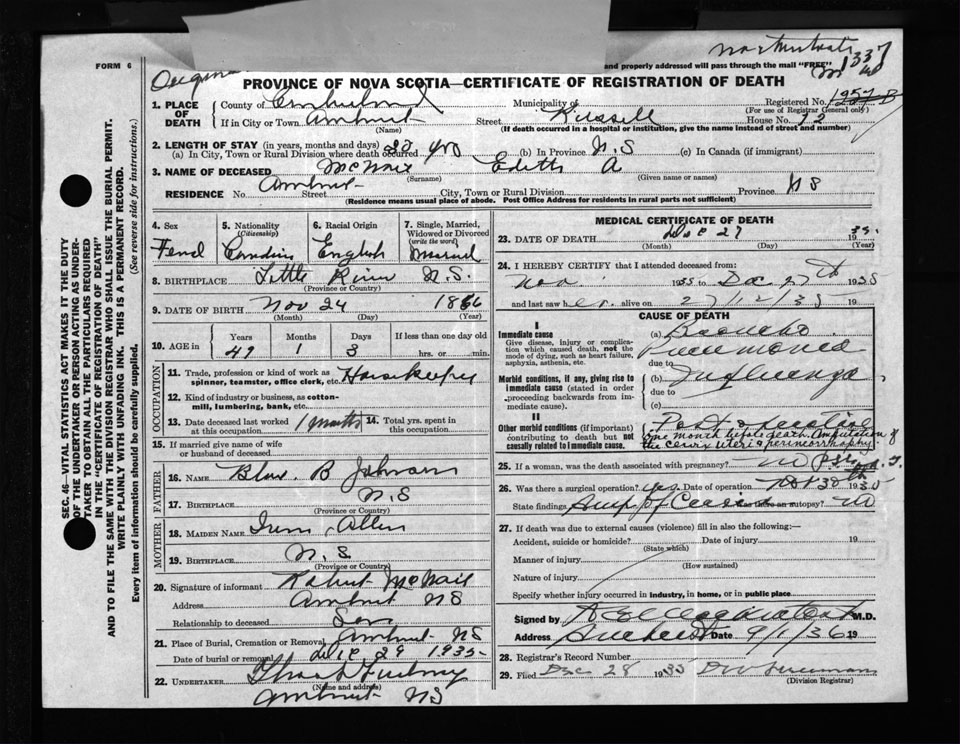 FORM 6
and properly addressed will pass through the mail "FREE"
1337
PROVINCE OF NOVA SCOTIA—CERTIFICATE OF REGISTRATION OF DEATH
1. PLACE OF DEATH
County of Cumberland Municipality of Registered No. 1957 B
(For use of Registrar General only)
If in City or Town Amherst Street Russell House No. 12
(Name) (If death occurred in a hospital or institution, give the name instead of street and number)
2. LENGTH OF STAY (in years, months and days)
(a) In City, Town or Rural Division where death occurred 20 yrs (b) In Province N.S (c) In Canada (if immigrant)
3. NAME OF DECEASED McNair Edith A
(Surname) (Given name or names)
RESIDENCE No. Amherst Street City, Town or Rural Division Province NS
(Residence means usual place of abode. Post Office Address for residents in rural parts not sufficient)
SEC. 46—VITAL STATISTICS ACT MAKES IT THE DUTY
OF THE UNDERTAKER OR PERSON ACTING AS UNDER-
TAKER TO OBTAIN ALL THE PARTICULARS REQUIRED
IN THE "CERTIFICATE OF REGISTRATION OF DEATH"
AND TO FILE THE SAME WITH THE DIVISION REGISTRAR WHO SHALL ISSUE THE BURIAL PERMIT.
WRITE PLAINLY WITH UNFADING INK. THIS IS A PERMANENT RECORD.
Every item of information should be carefully supplied. (See reverse side for instructions.)
4. Sex 5. Nationality (Citizenship) 6. Racial Origin 7. Single, Married, Widowed or Divorced (write the word)
Canadian English Married
8. BIRTHPLACE Little River N.S.
(Province or Country)
9. DATE OF BIRTH Nov 24
(Month) (Day) (Year)
10. AGE in Years Months Days If less than one day old
1 3 hrs. or min.
OCCUPATION
11. Trade, profession or kind of work as spinner, teamster, office clerk, etc. Housekeeper
12. Kind of industry or business, as cotton-mill, lumbering, bank, etc.
13. Date deceased last worked at this occupation 1 Month 14. Total yrs. spent in this occupation
15. If married give name of wife or husband of deceased
FATHER
16. NAME B Johnson
17. BIRTHPLACE N.S
(Province or Country)
MOTHER
18. MAIDEN NAME Allen
19. BIRTHPLACE N.S
(Province or Country)
20. Signature of informant Robert McNair
Address Amherst NS
Relationship to deceased Son
21. Place of Burial, Cremation or Removal Amherst NS
Date of burial or removal Dec 29 1935
22. UNDERTAKER
(Name and address)
Amherst NS
MEDICAL CERTIFICATE OF DEATH
23. DATE OF DEATH Dec 27 1935.
(Month) (Day) (Year)
24. I HEREBY CERTIFY that I attended deceased from:
Nov 1935 to Dec 27th 1935
and last saw her alive on 27/12/35 19
CAUSE OF DEATH
I
Immediate cause
Give disease, injury or complication which caused death, not the mode of dying, such as heart failure, asphyxia, asthenia, etc.
(a) Broncho
pneumonia
due to
Morbid conditions, if any, giving rise to immediate cause (stated in order proceeding backwards from immediate cause).
(b) Influenza
due to
(c)
II
Other morbid conditions (if important) contributing to death but not causally related to immediate cause.
one month before death. Amputation of
the cervix uteri & perineorrhaphy
25. If a woman, was the death associated with pregnancy? no
26. Was there a surgical operation? yes Date of operation Nov 30th 1935
State findings Was there an autopsy? no
27. If death was due to external causes (violence) fill in also the following:—
Accident, suicide or homicide? Date of injury 19
(State which)
Manner of injury
(How sustained)
Nature of injury
Specify whether injury occurred in industry, in home, or in public place
Signed by M.D.
Address Amherst Date 9/1/36 19
28. Registrar's Record Number
29. Filed Dec 28 1935
(Division Registrar)